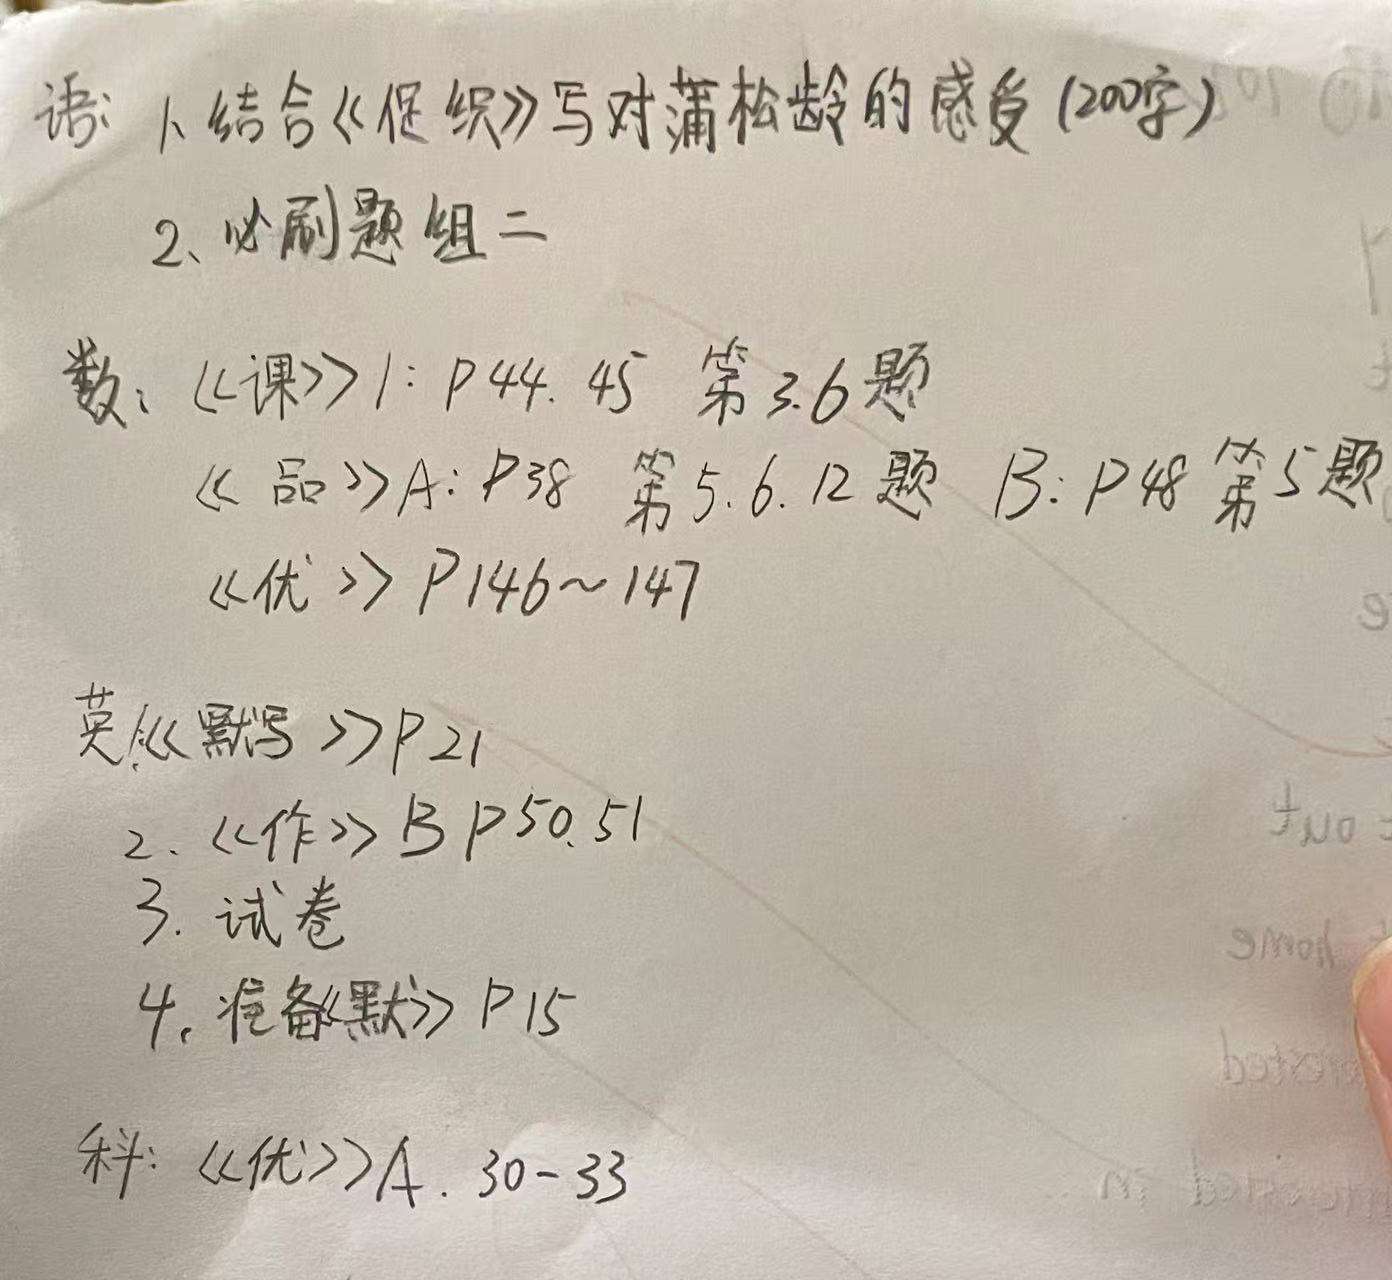 语: 1、结合《促织》写对蒲松龄的感受(200字)
2、必刷题组二
数: 《课》1: P44.45 第3.6题
《品》A: P38 第5.6.12题 B: P48第5题
《优》P146~147
英1.《默写》P21
2.《作》B P50.51
3.试卷
4.准备《默》P15
科: 《优》A. 30-33
out
home